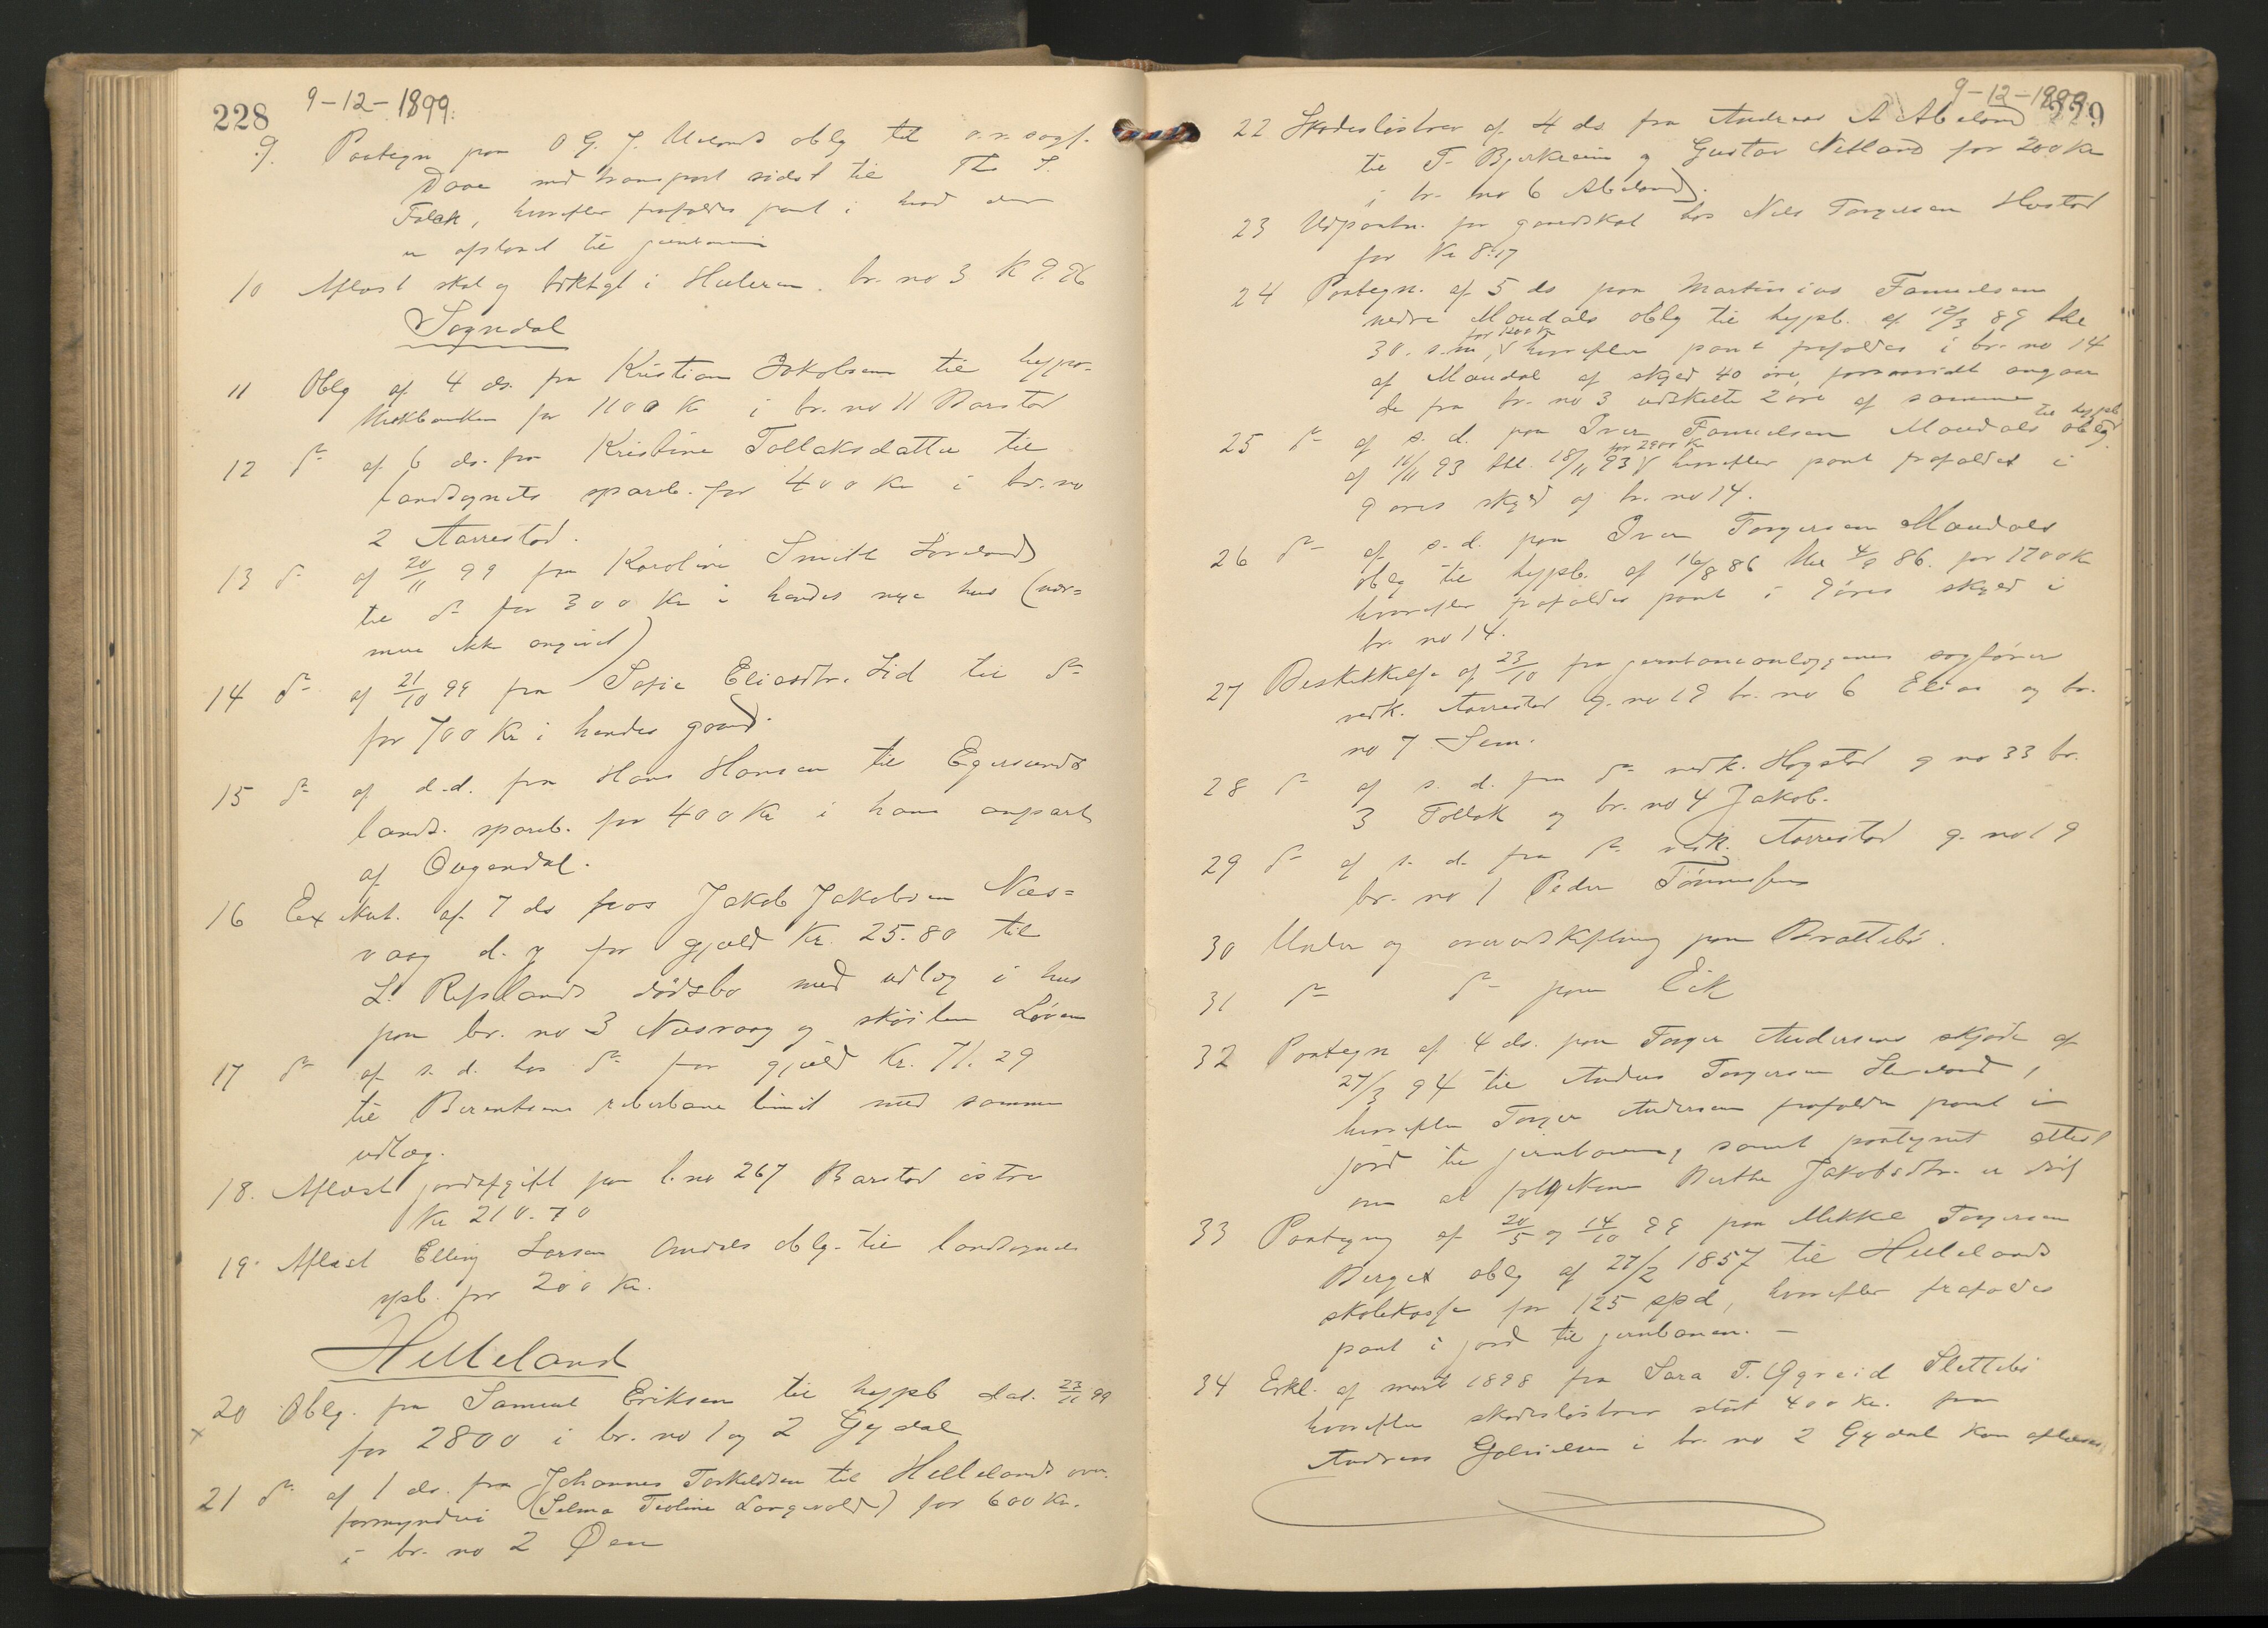 228
9-12-1899.
9. Paategn paa O G. J. Uelands oblg til o.r.sagf.
Daae med transport sidst til Th. S.
Falck, hvorefter frafaldes pant i hvad der
er afstaaet til jernbanen
10 Aflæst skal og taktgl i Heleren. br. no 3 K 9.96
Sogndal
11 Oblg af 4 ds. fra Kristian Jakobsen til hypo-
thekbanken for 1100 Kr i br. no 11 Barstad
12 do af 6 ds. fra Kristine Tollaksdatter til
landsognets spareb. for 400 Kr i br. no
2 Aarrestad.
13 do af 20/11 99 fra Karoline Smith Løveland
til do for 300 Kr i hendes nye hus (nær-
mere ikke angivet)
14 do af 21/10 99 fra Sofie Eliasdtr. Lid til do
for 700 Kr i hendes gaard.
15 do af d.d. fra Hans Hansen til Egersunds
lands. spareb. for 400 Kr i hans anpart
af Ougendal.
16 Exekut. af 7 ds hos Jakob Jakobsen Næs=
vaag d. y for gjæld Kr. 25.80 til
L. Refslands dødsbo med udlæg i hus
paa br. no 3 Næsvaag og skøiten Løven
17 do af s. d. hos do for gjæld Kr. 71.29
til Berentsens reberbane limit med samme
udlæg.
18. Aflæst jordafgift paa l.no 267 Barstad østre
Kr 210.70
19. Aflæst Elling Larsen Aardals oblg. til landsognets
spb. for 200 Kr.
Helleland
20 Oblg. fra Samuel Eriksen til hypb dat. 23/11 99
x for 2800 i br. no 1 og 2 Gydal
21 do af 1 ds. fra Johannes Torkeldsen til Hellelands over-
formynderi (Selma Teoline Langevald) for 600 Kr.
i br. no 2 Øen
9-12-1899.
229
22 Skadesløsbrev af 4 ds fra Andreas A Abeland
til T. Bjerkreim og Gustav Netland for 200 Kr
i br. no 6 Abeland.
23 Udpantn. for gaardskat hos Nils Torgersen Hovstad
for Kr 8.17
24 Paategn. af 5 ds paa Martinius Samuelsen
nedre Moudals oblg til hypb. af 12/3 89 thl
30. s.m, for 1200 Kr hvorefter pant frafaldes i br. no 14
af Moudal af skyld 40 øre, forsaavidt angaar
de fra br. no 3 udskilte 2 øre af samme
25 do af s. d. paa Iver Samuelsen Moudals oblg til hypb
af 11/11 93 thl. 18/11 93 for 2900 Kr hvorefter pant frafaldes i
9 øres skyld af br. no 14.
26 do af s. d. paa Iver Torgersen Moudals
oblg til hypb. af 16/8 86 thl 4/9 86. for 1700 Kr
hvorefter frafaldes pant i 9 øres skyld i
br. no 14.
27 Beskikkelse af 23/10 fra jernbaneanlæggenes sagfører
vedk. Aarrestad g. no 19 br. no 6 Elias og br.
no 7 Sem.
28 do af s. d. fra do vedk. Hogstad g no 33 br.
3 Tollak og br. no 4 Jakob.
29 do af s. d. fra do vedk. Aarrestad g. no 19
br. no 1 Peder Tønnesen
30 Under og overudskiftning paa Brattebø.
31 do do paa Eik
32 Paategn af 4 ds. paa Torger Andersens skjøde af
27/3 94 til Anders Torgersen Sleveland,
hvorefter Torger Andersen frafalder pant i
jord til jernbanen, samt paategnet attest
om at folgekone Berthe Jakobsdtr. er død
33 Paategng af 20/5 og 14/10 99 paa Mikkel Torgersen
Berget oblg af 27/2 1857 til Hellelands
skolekasse for 125 spd, hvorefter frafaldes
pant i jord til jernbanen. —
34 Erkl. af marts 1898 fra Sara T. Ggreid Slettebø
hvorefter skadesløsbrev stort 400 Kr. fra
Andreas Gabrielsen i br. no 2 Gydal kan aflæses